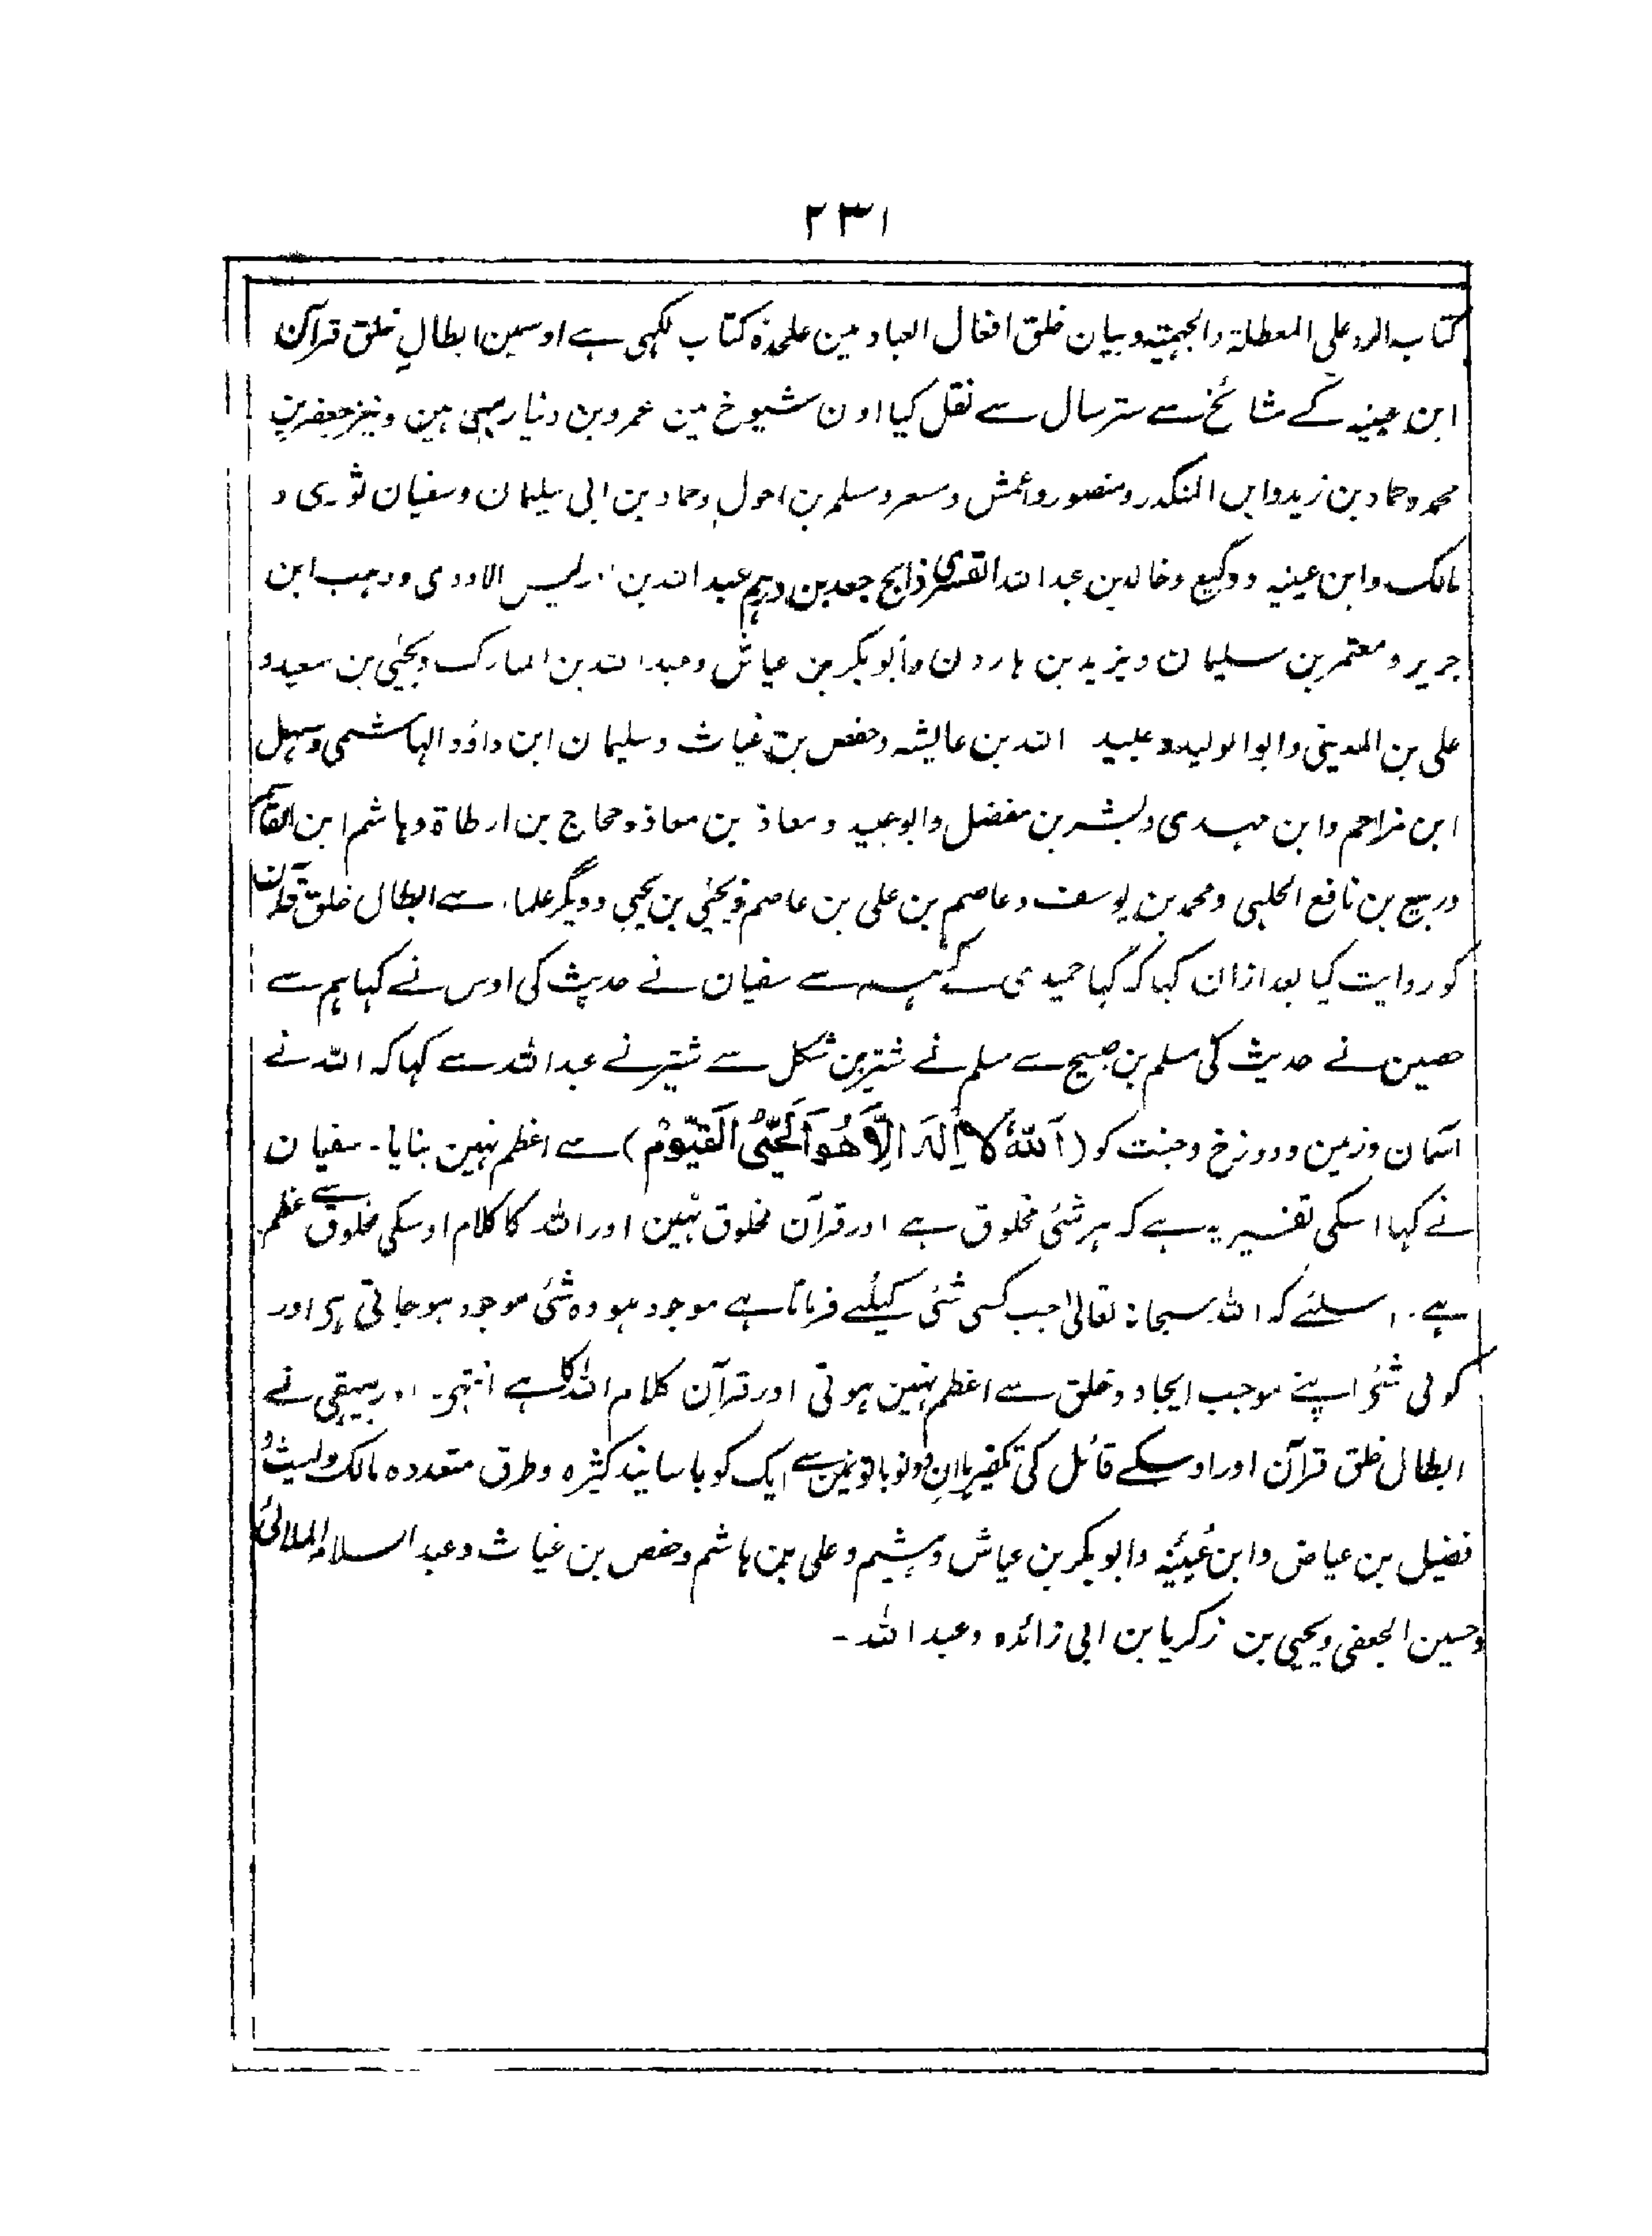 ۲۳۱
کتاب الرد علی المعطلۃ والجہمیۃ وبیان خلق افعال العباد مین علحدہ کتاب لکہی ہے اوسمین ابطالِ خلق قرآن
ابن عیینہ کے مشائخ سے ستر سال سے نقل کیا اون شیوخ مین عمرو بن دنیار بہی ہین ونیز جعفر بن
محمد وحماد بن زید وابن المنکدر ومنصور واعمش ومسعر ومسلم بن احول وحماد بن ابی سلیمان وسفیان ثوری و
مالک وابن عینیہ ووکیع وخالد بن عبداللہ القسری ذابح جعد بن درہم عبداللہ بن ادریس الاودی ووہب ابن
جریر ومعتمر بن سلیمان ویزید بن ہارون وابو بکر بن عیاش وعبداللہ بن المبارک ویحیٰی بن سعید و
علی بن المدینی وابوالولید وعبید اللہ بن عایشہ وحفص بن غیاث وسلیمان ابن داؤد الہاشمی وسہل
ابن مزاحم وابن مہدی وبشر بن مفضل وابو عبید ومعاذ بن معاذ وحجاج بن ارطاۃ وہاشم ابن القاسم
وربیع بن نافع الحلبی ومحمد بن یوسف وعاصم بن علی بن عاصم ویحیٰی بن یحیی ودیگر علماء سے ابطال خلق قرآن
کو روایت کیا بعد ازان کہا کہ کہا حمیدی نے ہمسے سفیان نے حدیث کی اوس نے کہا ہم سے
حصین نے حدیث کی مسلم بن صبیح سے مسلم نے شتیر بن شکل سے شتیر نے عبداللہ سے کہا کہ اللہ نے
آسمان وزمین ودوزخ وجنت کو (اَللّٰہُ لَا اِلٰہَ اِلَّا ھُوَ اَلْحَیُّ الْقَیُّوْمُ) سے اعظم نہین بنایا۔ سفیان
نے کہا اسکی تفسیر یہ ہے کہ ہر شئی مخلوق ہے اور قرآن مخلوق نہین اور اللہ کا کلام اوسکی مخلوق سے اعظم
ہے۔ اسلئے کہ اللہ سبحانہ تعالیٰ جب کسی شئی کیلئے فرماتا ہے موجود ہو وہ شئی موجود ہو جاتی ہی اور
کوئی شئی اپنے موجب ایجاد وخلق سے اعظم نہین ہوتی اور قرآن کلام اللہ کا ہے انتہی۔ اور بیہقی نے
ابطال خلق قرآن اور اوسکے قائل کی تکفیر یا ان دونو باتونمین سے ایک کو با سانید کثیرہ وطرق متعددہ مالک ولیث و
فضیل بن عیاض وابن عُیَیْنَہ وابو بکر بن عیاش وہشیم وعلی بن ہاشم وحفص بن غیاث وعبدالسلام الملائی
وحسین الجعفی ویحیی بن زکریا بن ابی زائدہ وعبداللہ ـ